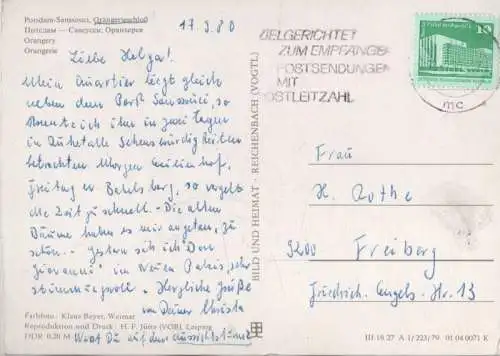 Potsdam-Sanssouci, Orangerieschloß
Потсдам — Сансусси: Оранжерея
Orangery
Orangerie
17.9.80
Liebe Helga!
Mein Quartier liegt gleich
neben dem Park Sanssouci, so
konnte ich in zwei Tagen
in Ruhe alle Sehenswürdigkeiten
betrachten. Morgen Cecilienhof,
Freitag Babelsberg, so vergeht
die Zeit zu schnell. – Die alten
Bäume haben es mir angetan, zu
schön. – Gestern sah ich "Don
Giovanni" im Neuen Palais, sehr
stimmungsvoll. – Herzliche Grüße
von Deiner Christa
Warst Du auf dem Aussichtsturm?
Farbfoto: Klaus Beyer, Weimar
Reproduktion und Druck: H. F. Jütte (VOB), Leipzig
DDR 0,20 M
BILD UND HEIMAT · REICHENBACH (VOGTL.)
ZIELGERICHTET
ZUM EMPFÄNGER
POSTSENDUNGEN
MIT
POSTLEITZAHL
10
mc
Frau
H. Rothe
9200 Freiberg
Friedrich-Engels-Str. 13
III 18 27 A 1/223/79 01 04 0071 K